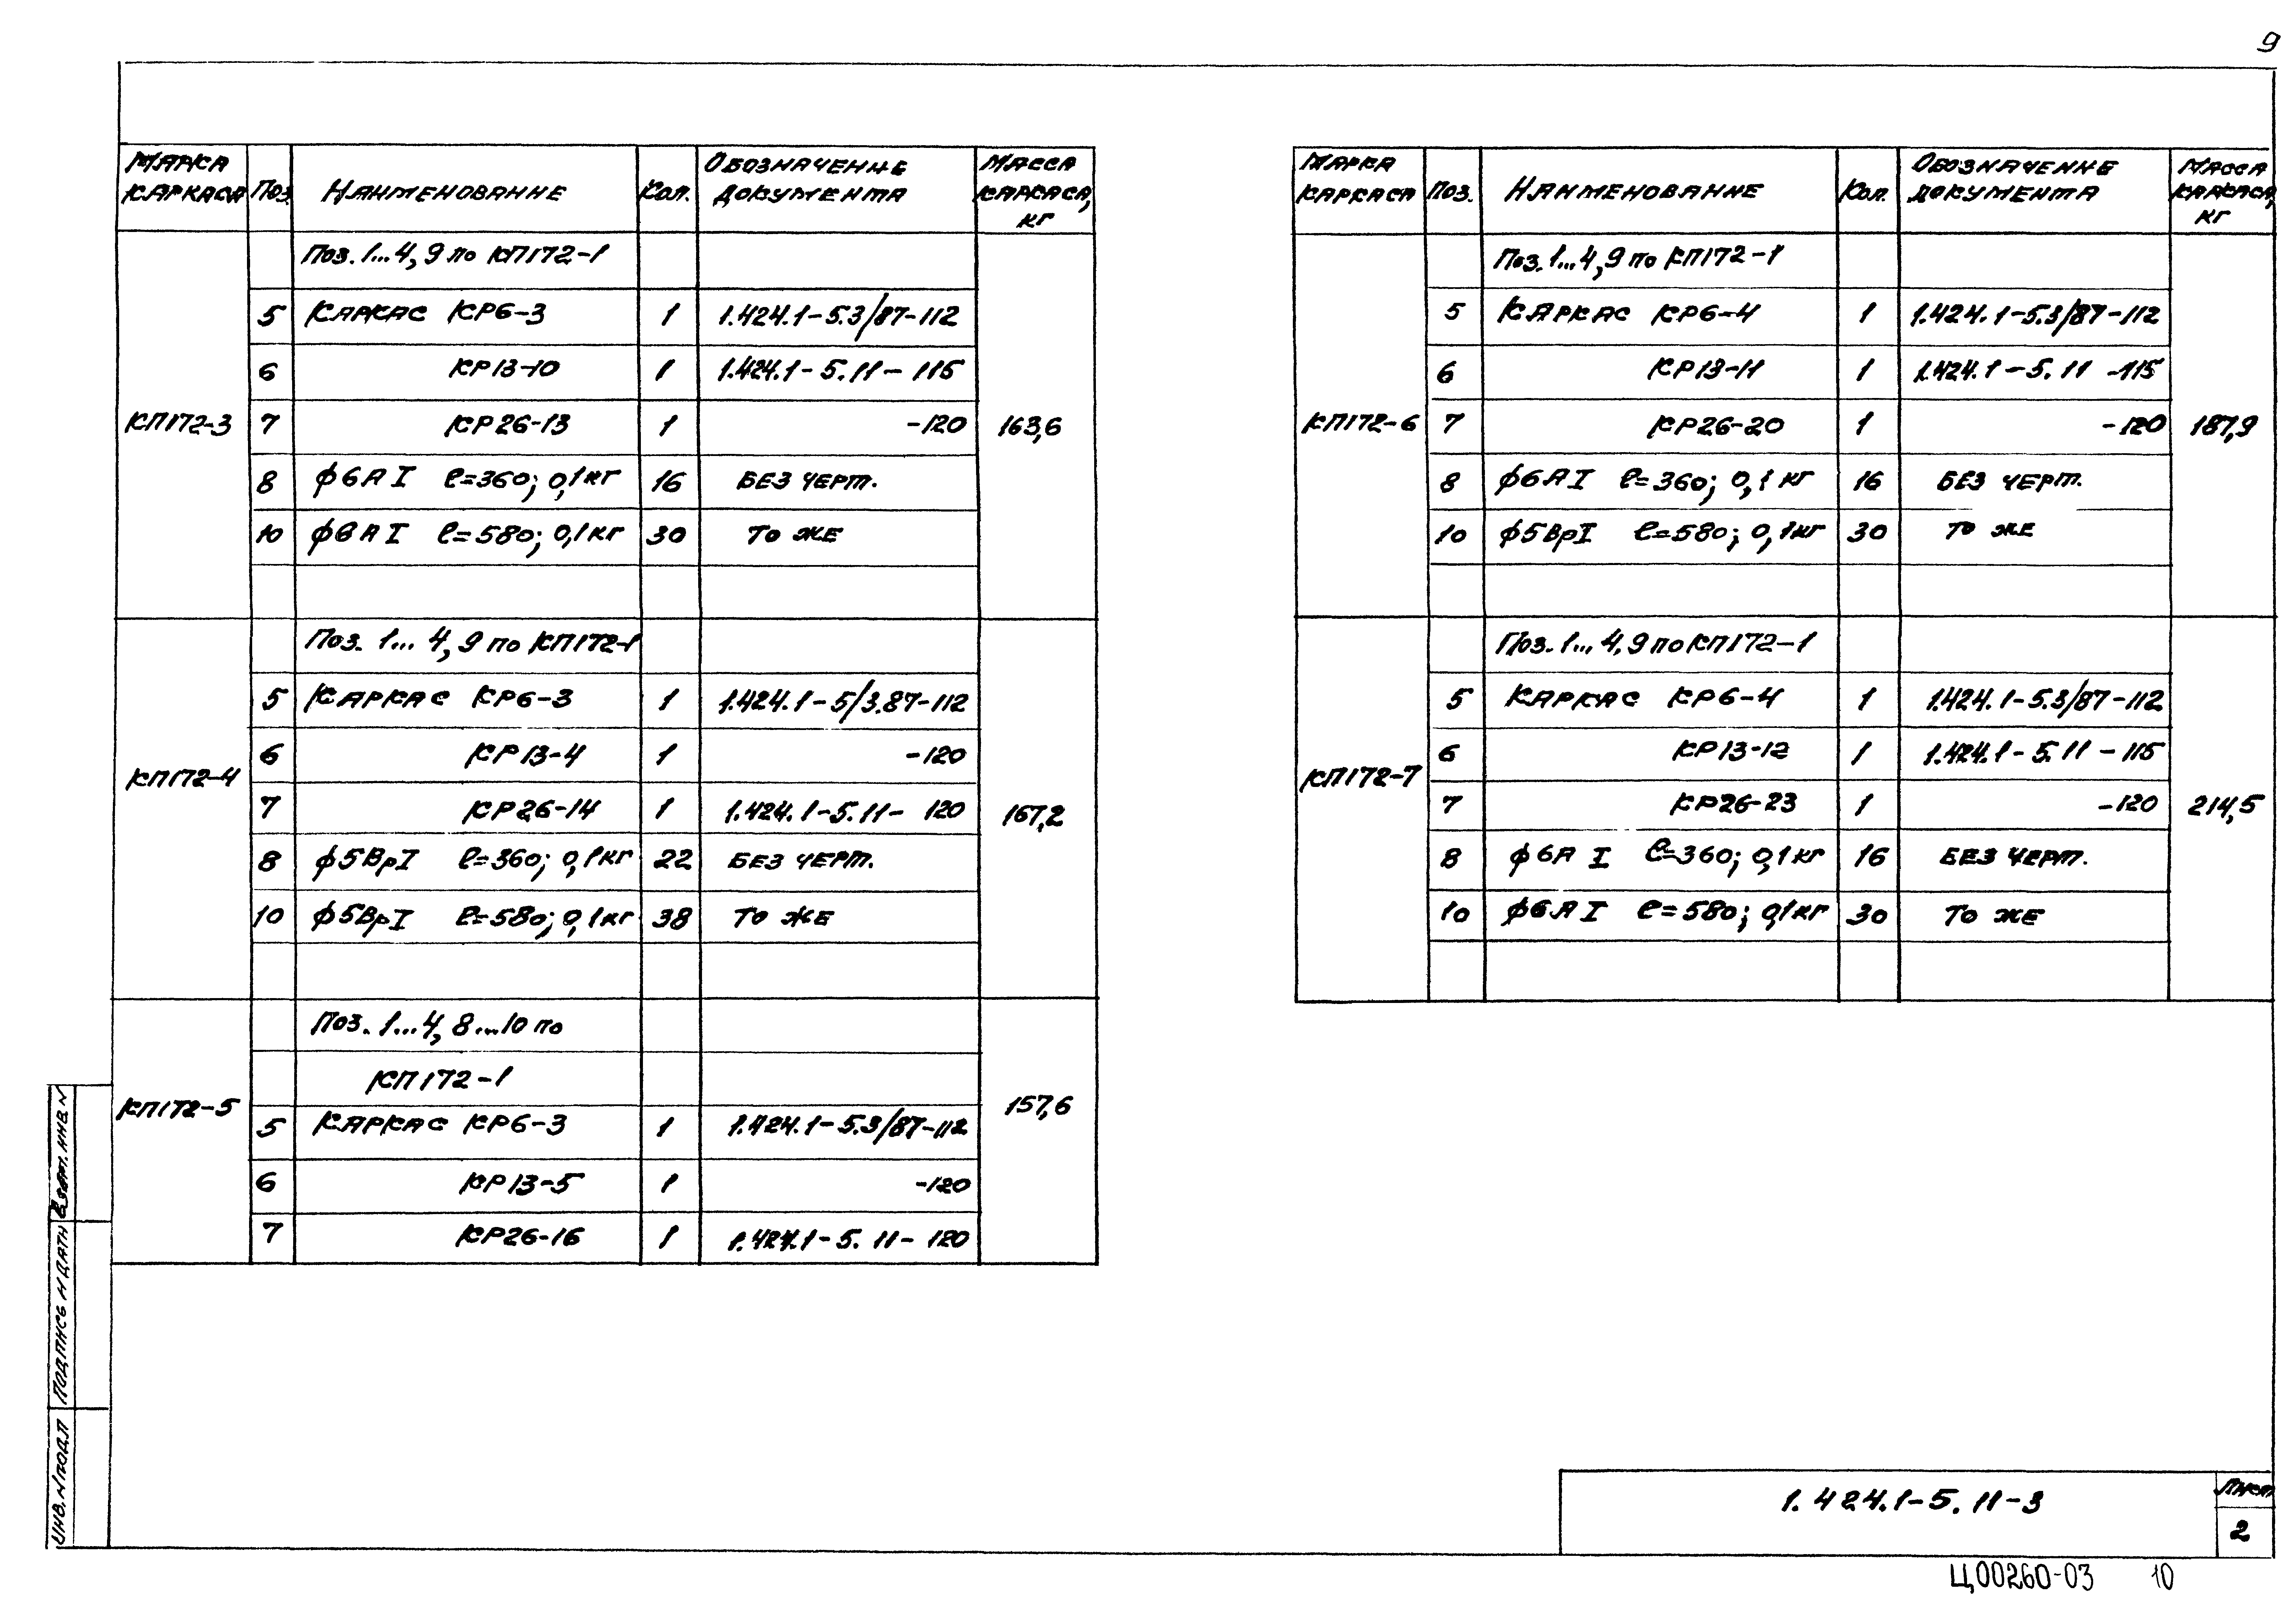 9
Марка каркаса Поз. Наименование Кол. Обозначение документа Масса каркаса, кг
Поз. 1...4, 9 по КП172-1
5 Каркас КР6-3 1 1.424.1-5.3/87-112
6 КР13-10 1 1.424.1-5.11-115
КП172-3 7 КР26-13 1 -120 163,6
8 ф6АI ℓ=360; 0,1кг 16 без черт.
10 ф6АI ℓ=580; 0,1кг 30 то же
Поз. 1...4, 9 по КП172-1
5 Каркас КР6-3 1 1.424.1-5/3.87-112
6 КР13-4 1 -120
КП172-4
7 КР26-14 1 1.424.1-5.11-120 167,2
8 ф5ВрI ℓ=360; 0,1кг 22 без черт.
10 ф5ВрI ℓ=580; 0,1кг 38 то же
Поз. 1...4, 8...10 по
КП172-1
КП172-5 157,6
5 Каркас КР6-3 1 1.424.1-5.3/87-112
6 КР13-5 1 -120
7 КР26-16 1 1.424.1-5.11-120
Марка каркаса Поз. Наименование Кол. Обозначение документа Масса каркаса, кг
Поз. 1...4, 9 по КП172-1
5 Каркас КР6-4 1 1.424.1-5.3/87-112
6 КР13-11 1 1.424.1-5.11-115
КП172-6 7 КР26-20 1 -120 187,9
8 ф6АI ℓ=360; 0,1кг 16 без черт.
10 ф5ВрI ℓ=580; 0,1кг 30 то же
Поз. 1...4, 9 по КП172-1
5 Каркас КР6-4 1 1.424.1-5.3/87-112
6 КР13-12 1 1.424.1-5.11-115
КП172-7
7 КР26-23 1 -120 214,5
8 ф6АI ℓ=360; 0,1кг 16 без черт.
10 ф6АI ℓ=580; 0,1кг 30 то же
Инв. N подл Подпись и дата Взам. инв. N
1.424.1-5.11-3 Лист
2
Ц00260-03 10